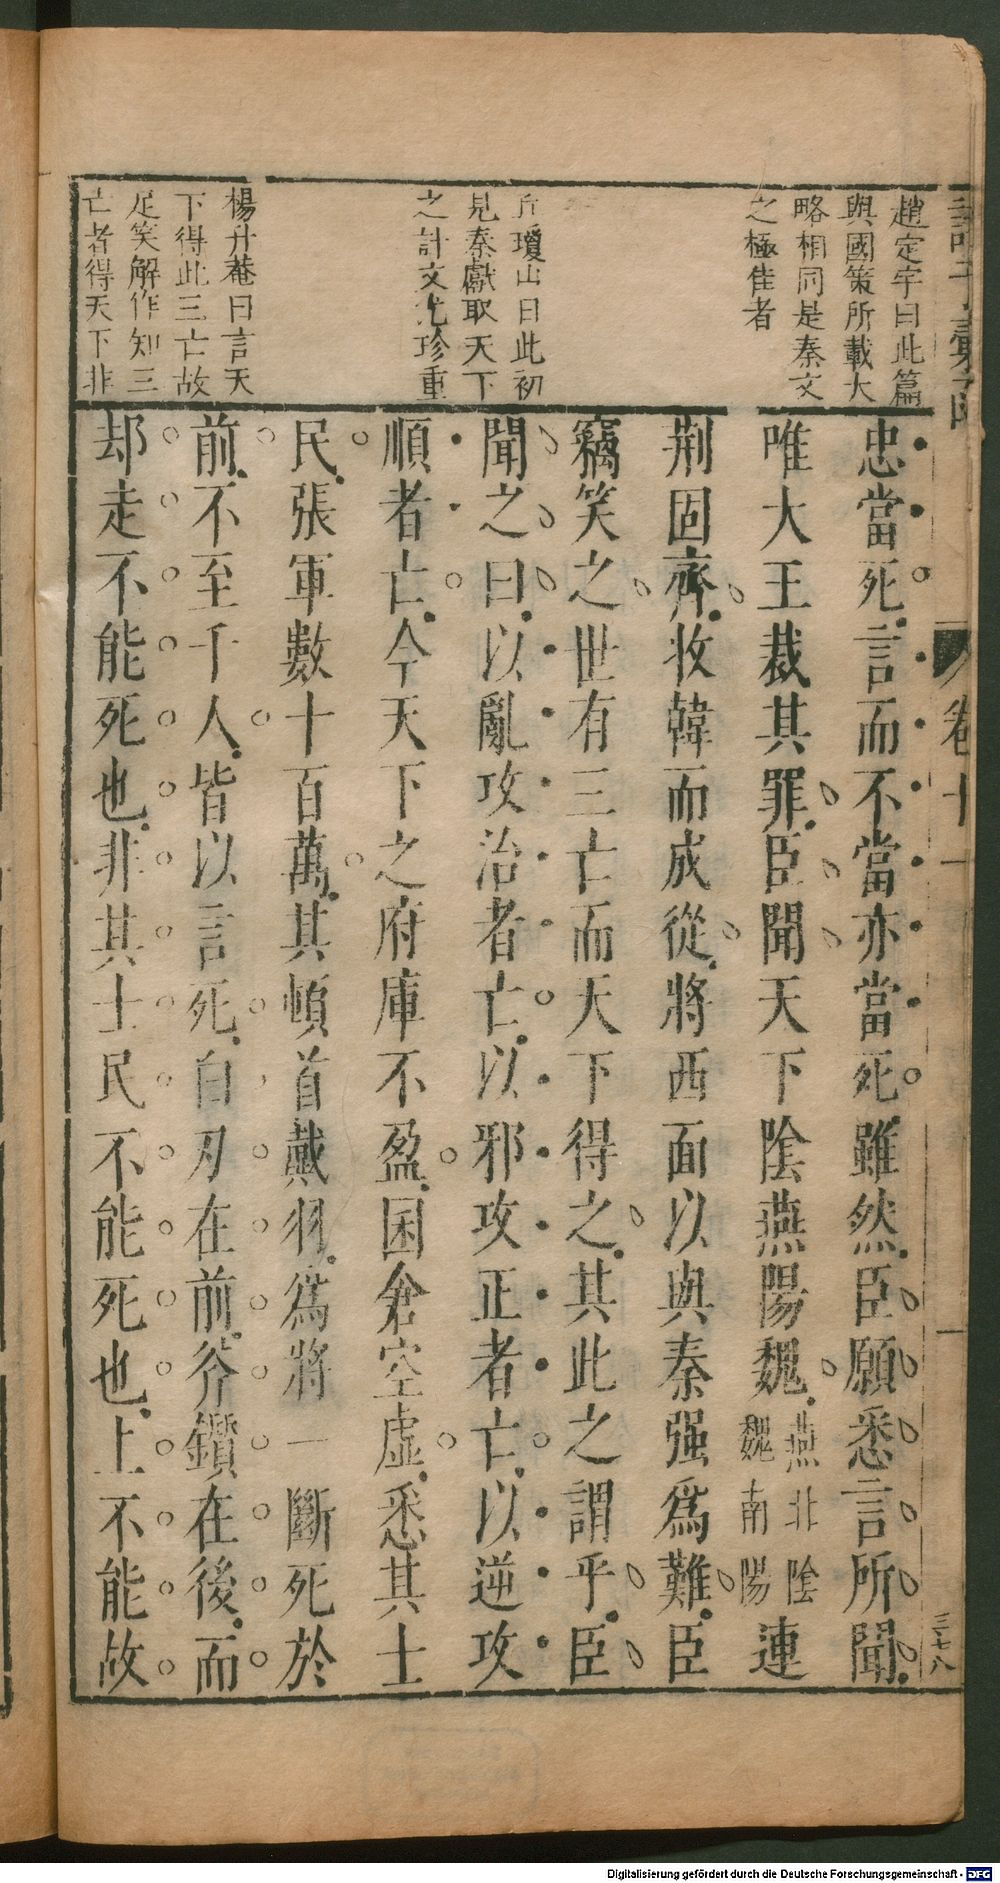 趙定宇曰此篇
與國策所載大
略相同是秦文
之極佳者
丘瓊山曰此初
見秦獻取天下
之計文尤珍重
楊升菴曰言天
下得此三亡故
足笑解作知三
亡者得天下非
忠當死言而不當亦當死雖然臣願悉言所聞
唯大王裁其罪臣聞天下陰燕陽魏燕北陰魏南陽連
荆固齊收韓而成從將西面以與秦强爲難臣
竊笑之世有三亡而天下得之其此之謂乎臣
聞之曰以亂攻治者亡以邪攻正者亡以逆攻
順者亡今天下之府庫不盈囷倉空虛悉其士
民張軍數十百萬其頓首戴羽爲將一斷死於
前不至千人皆以言死白刃在前斧鑕在後而
却走不能死也非其士民不能死也上不能故
卷十一
三七八
Digitalisierung gefördert durch die Deutsche Forschungsgemeinschaft - DFG